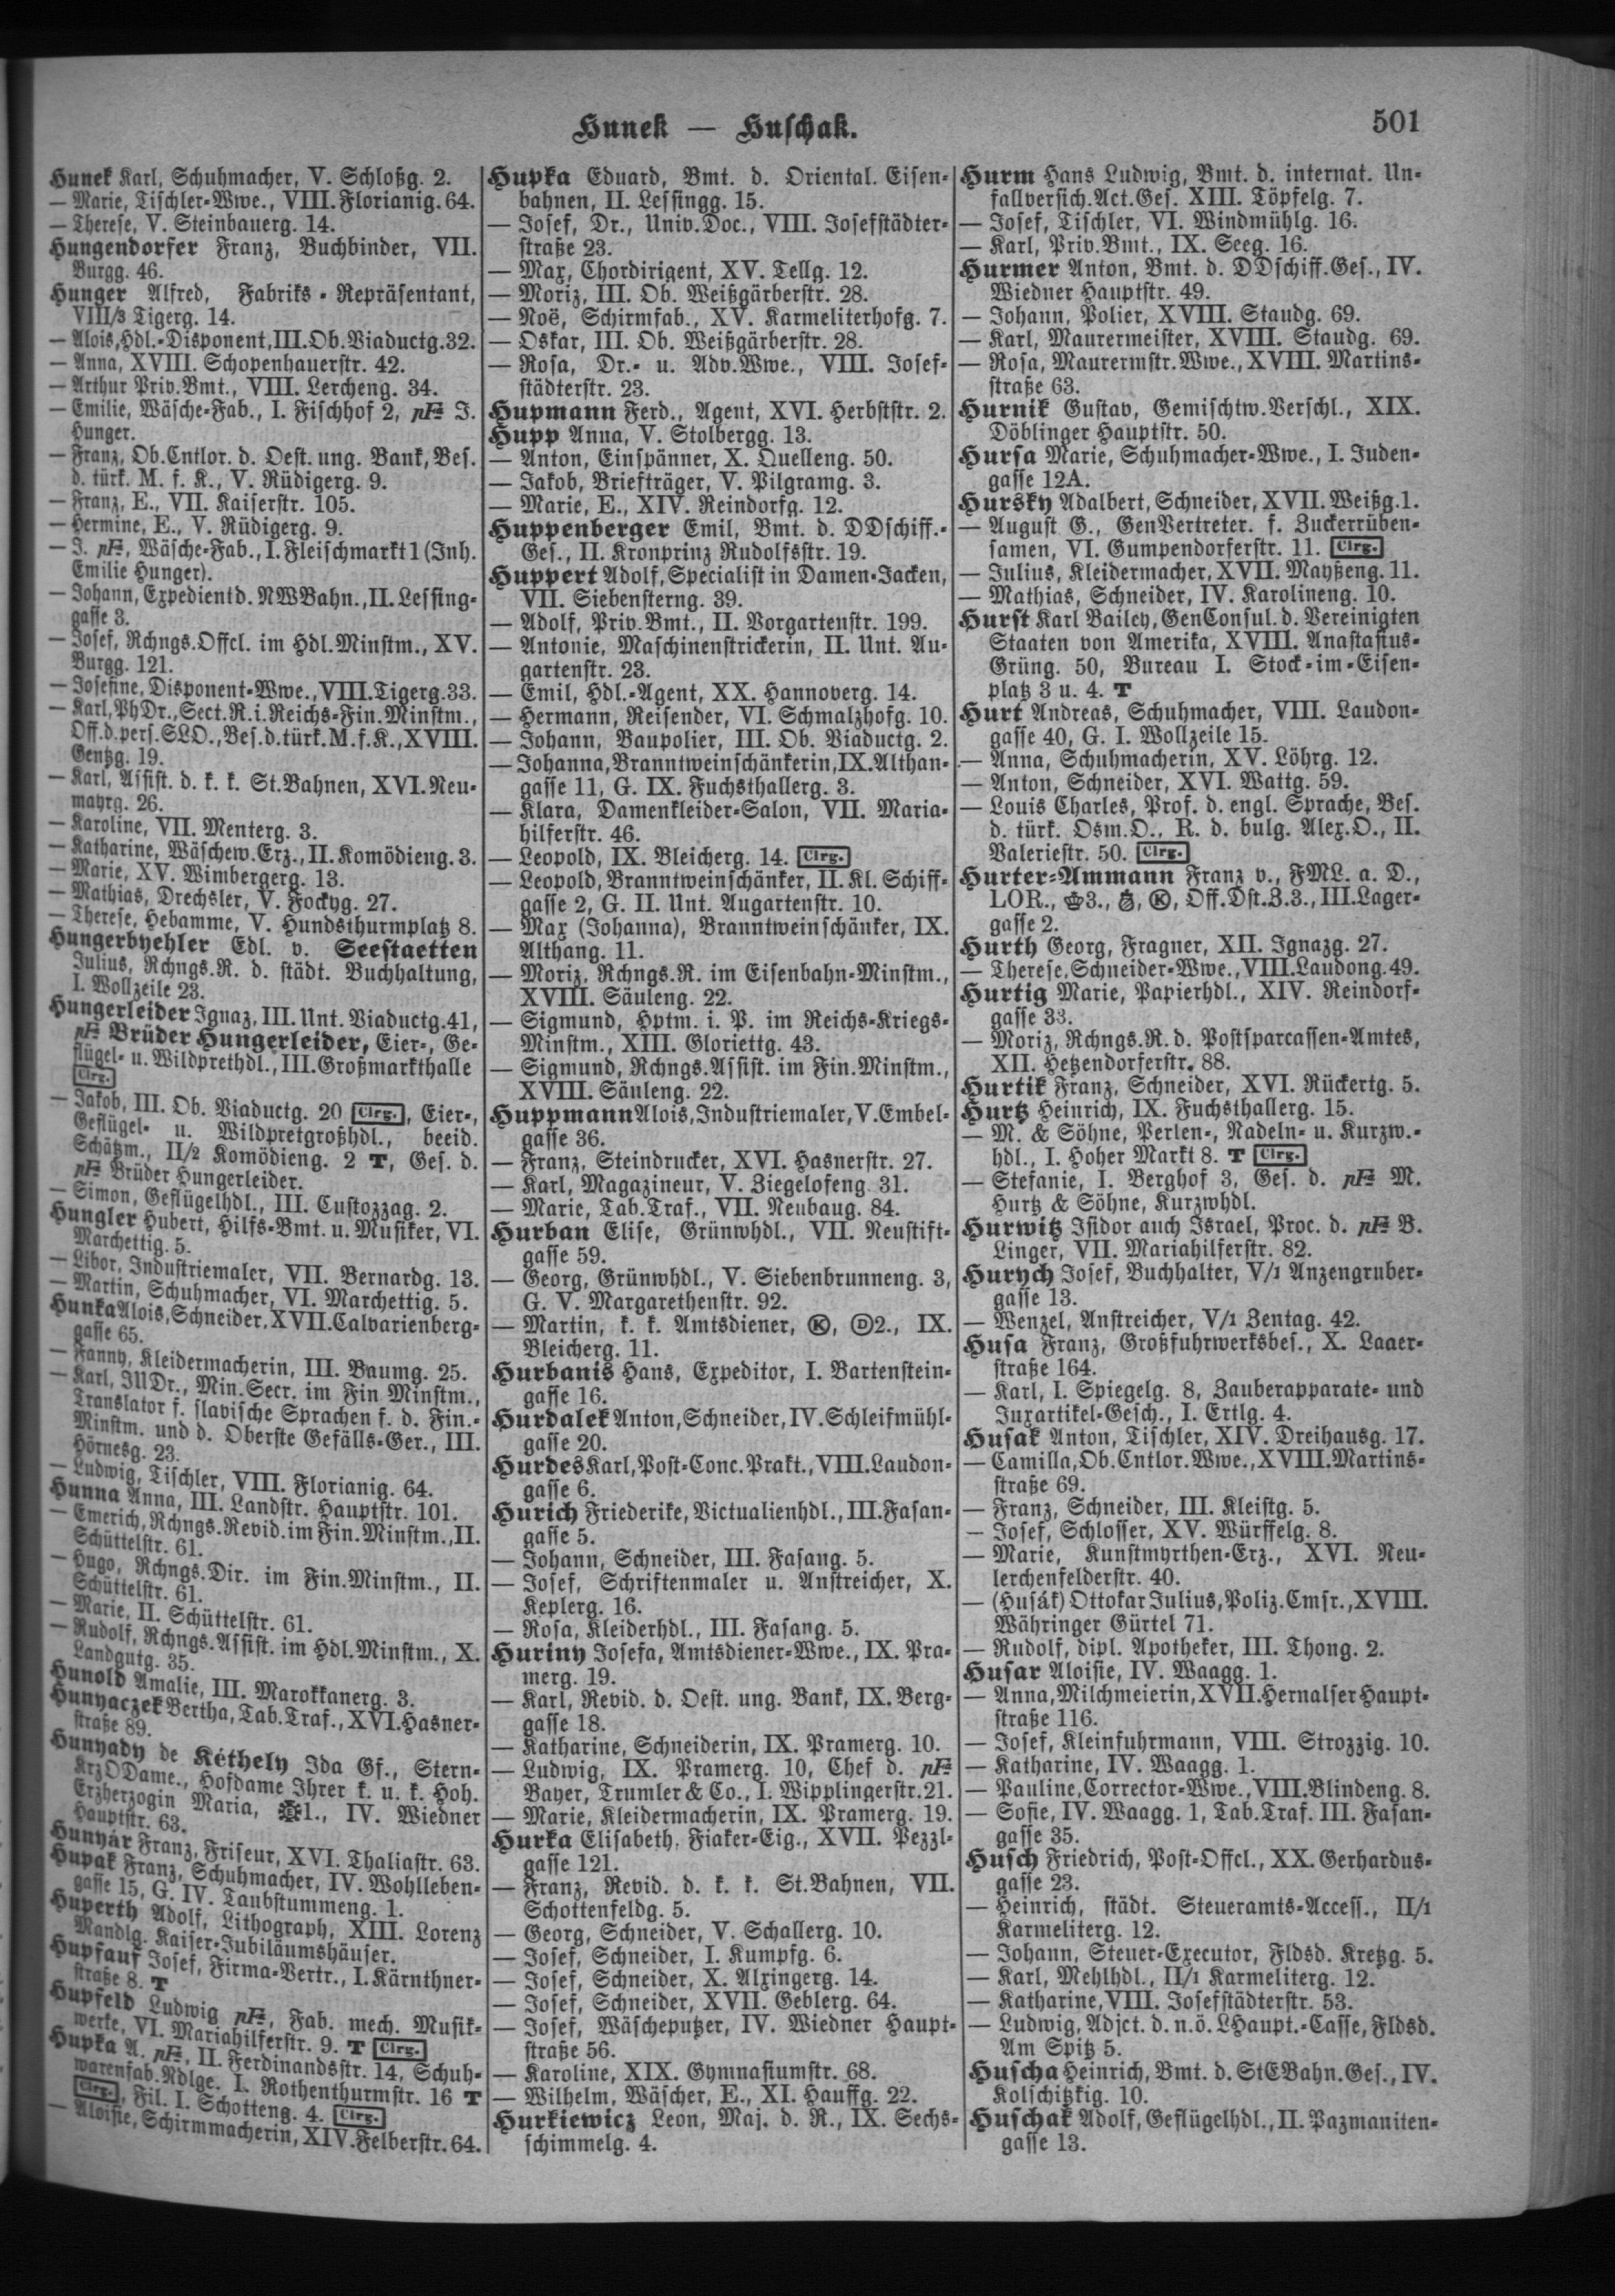 Hunek — Huschak.
501
Hunek Karl, Schuhmacher, V. Schloßg. 2.
— Marie, Tischler-Wwe., VIII. Florianig. 64.
— Therese, V. Steinbauerg. 14.
Hungendorfer Franz, Buchbinder, VII.
Burgg. 46.
Hunger Alfred, Fabriks-Repräsentant,
VIII/3 Tigerg. 14.
— Alois, Hdl.-Disponent, III. Ob. Viaductg. 32.
— Anna, XVIII. Schopenhauerstr. 42.
— Arthur Priv.Bmt., VIII. Lercheng. 34.
— Emilie, Wäsche-Fab., I. Fischhof 2, pF J.
Hunger.
— Franz, Ob.Cntlor. d. Oest. ung. Bank, Bes.
d. türk. M. f. K., V. Rüdigerg. 9.
— Franz, E., VII. Kaiserstr. 105.
— Hermine, E., V. Rüdigerg. 9.
— J. pF, Wäsche-Fab., I. Fleischmarkt 1 (Inh.
Emilie Hunger).
— Johann, Expedient d. NWBahn., II. Lessing-
gasse 3.
— Josef, Rchngs.Offcl. im Hdl.Minstm., XV.
Burgg. 121.
— Josefine, Disponent-Wwe., VIII. Tigerg. 33.
— Karl, PhDr., Sect.R. i. Reichs-Fin.Minstm.,
Off.d.pers.SLO., Bes.d.türk.M.f.K., XVIII.
Gentzg. 19.
— Karl, Assist. d. k. k. St.Bahnen, XVI. Neu-
mayrg. 26.
— Karoline, VII. Menterg. 3.
— Katharine, Wäschew.Erz., II. Komödieng. 3.
— Marie, XV. Wimbergerg. 13.
— Mathias, Drechsler, V. Fockyg. 27.
— Therese, Hebamme, V. Hundsthurmplatz 8.
Hungerbyehler Edl. v. Seestaetten
Julius, Rchngs.R. d. städt. Buchhaltung,
I. Wollzeile 23.
Hungerleider Ignaz, III. Unt. Viaductg. 41,
pF Brüder Hungerleider, Eier-, Ge-
flügel- u. Wildprethdl., III. Großmarkthalle
Clrg.
— Jakob, III. Ob. Viaductg. 20 Clrg., Eier-,
Geflügel- u. Wildpretgroßhdl., beeid.
Schätzm., II/2 Komödieng. 2 T, Ges. d.
pF Brüder Hungerleider.
— Simon, Geflügelhdl., III. Custozzag. 2.
Hungler Hubert, Hilfs-Bmt. u. Musiker, VI.
Marchettig. 5.
— Libor, Industriemaler, VII. Bernardg. 13.
— Martin, Schuhmacher, VI. Marchettig. 5.
Hunka Alois, Schneider, XVII. Calvarienberg-
gasse 65.
— Fanny, Kleidermacherin, III. Baumg. 25.
— Karl, JUDr., Min.Secr. im Fin Minstm.,
Translator f. slavische Sprachen f. d. Fin.-
Minstm. und d. Oberste Gefälls-Ger., III.
Hörnesg. 23.
— Ludwig, Tischler, VIII. Florianig. 64.
Hunna Anna, III. Landstr. Hauptstr. 101.
— Emerich, Rchngs.Revid. im Fin.Minstm., II.
Schüttelstr. 61.
— Hugo, Rchngs.Dir. im Fin.Minstm., II.
Schüttelstr. 61.
— Marie, II. Schüttelstr. 61.
— Rudolf, Rchngs.Assist. im Hdl.Minstm., X.
Landgutg. 35.
Hunold Amalie, III. Marokkanerg. 3.
Hunyaczek Bertha, Tab.Traf., XVI. Hasner-
straße 89.
Hunyady de Kéthely Ida Gf., Stern-
KrzODame., Hofdame Ihrer k. u. k. Hoh.
Erzherzogin Maria, 1., IV. Wiedner
Hauptstr. 63.
Hunyár Franz, Friseur, XVI. Thaliastr. 63.
Hupak Franz, Schuhmacher, IV. Wohlleben-
gasse 15, G. IV. Taubstummeng. 1.
Huperth Adolf, Lithograph, XIII. Lorenz
Mandlg. Kaiser-Jubiläumshäuser.
Hupfauf Josef, Firma-Vertr., I. Kärnthner-
straße 8. T
Hupfeld Ludwig pF, Fab. mech. Musik-
werke, VI. Mariahilferstr. 9. T Clrg.
Hupka A. pF, II. Ferdinandsstr. 14, Schuh-
warenfab.Ndlge. I. Rothenthurmstr. 16 T
Clrg., Fil. I. Schotteng. 4. Clrg.
— Aloisie, Schirmmacherin, XIV. Felberstr. 64.
Hupka Eduard, Bmt. d. Oriental. Eisen-
bahnen, II. Lessingg. 15.
— Josef, Dr., Univ.Doc., VIII. Josefstädter-
straße 23.
— Max, Chordirigent, XV. Tellg. 12.
— Moriz, III. Ob. Weißgärberstr. 28.
— Noë, Schirmfab., XV. Karmeliterhofg. 7.
— Oskar, III. Ob. Weißgärberstr. 28.
— Rosa, Dr.- u. Adv.Wwe., VIII. Josef-
städterstr. 23.
Hupmann Ferd., Agent, XVI. Herbststr. 2.
Hupp Anna, V. Stolbergg. 13.
— Anton, Einspänner, X. Quelleng. 50.
— Jakob, Briefträger, V. Pilgramg. 3.
— Marie, E., XIV. Reindorfg. 12.
Huppenberger Emil, Bmt. d. DDschiff.-
Ges., II. Kronprinz Rudolfsstr. 19.
Huppert Adolf, Specialist in Damen-Jacken,
VII. Siebensterng. 39.
— Adolf, Priv.Bmt., II. Vorgartenstr. 199.
— Antonie, Maschinenstrickerin, II. Unt. Au-
gartenstr. 23.
— Emil, Hdl.-Agent, XX. Hannoverg. 14.
— Hermann, Reisender, VI. Schmalzhofg. 10.
— Johann, Baupolier, III. Ob. Viaductg. 2.
— Johanna, Branntweinschänkerin, IX. Althan-
gasse 11, G. IX. Fuchsthallerg. 3.
— Klara, Damenkleider-Salon, VII. Maria-
hilferstr. 46.
— Leopold, IX. Bleicherg. 14. Clrg.
— Leopold, Branntweinschänker, II. Kl. Schiff-
gasse 2, G. II. Unt. Augartenstr. 10.
— Max (Johanna), Branntweinschänker, IX.
Althang. 11.
— Moriz, Rchngs.R. im Eisenbahn-Minstm.,
XVIII. Säuleng. 22.
— Sigmund, Hptm. i. P. im Reichs-Kriegs-
Minstm., XIII. Gloriettg. 43.
— Sigmund, Rchngs.Assist. im Fin.Minstm.,
XVIII. Säuleng. 22.
Huppmann Alois, Industriemaler, V. Embel-
gasse 36.
— Franz, Steindrucker, XVI. Hasnerstr. 27.
— Karl, Magazineur, V. Ziegelofeng. 31.
— Marie, Tab.Traf., VII. Neubaug. 84.
Hurban Elise, Grünwhdl., VII. Neustift-
gasse 59.
— Georg, Grünwhdl., V. Siebenbrunneng. 3,
G. V. Margarethenstr. 92.
— Martin, k. k. Amtsdiener, K, D2., IX.
Bleicherg. 11.
Hurbanis Hans, Expeditor, I. Bartenstein-
gasse 16.
Hurdalek Anton, Schneider, IV. Schleifmühl-
gasse 20.
Hurdes Karl, Post-Conc.Prakt., VIII. Laudon-
gasse 6.
Hurich Friederike, Victualienhdl., III. Fasan-
gasse 5.
— Johann, Schneider, III. Fasang. 5.
— Josef, Schriftenmaler u. Anstreicher, X.
Keplerg. 16.
— Rosa, Kleiderhdl., III. Fasang. 5.
Huriny Josefa, Amtsdiener-Wwe., IX. Pra-
merg. 19.
— Karl, Revid. d. Oest. ung. Bank, IX. Berg-
gasse 18.
— Katharine, Schneiderin, IX. Pramerg. 10.
— Ludwig, IX. Pramerg. 10, Chef d. pF
Bayer, Trumler & Co., I. Wipplingerstr. 21.
— Marie, Kleidermacherin, IX. Pramerg. 19.
Hurka Elisabeth, Fiaker-Eig., XVII. Pezzl-
gasse 121.
— Franz, Revid. d. k. k. St.Bahnen, VII.
Schottenfeldg. 5.
— Georg, Schneider, V. Schallerg. 10.
— Josef, Schneider, I. Kumpfg. 6.
— Josef, Schneider, X. Alxingerg. 14.
— Josef, Schneider, XVII. Geblerg. 64.
— Josef, Wäscheputzer, IV. Wiedner Haupt-
straße 56.
— Karoline, XIX. Gymnasiumstr. 68.
— Wilhelm, Wäscher, E., XI. Hauffg. 22.
Hurkiewicz Leon, Maj. d. R., IX. Sechs-
schimmelg. 4.
Hurm Hans Ludwig, Bmt. d. internat. Un-
fallversich.Act.Ges. XIII. Töpfelg. 7.
— Josef, Tischler, VI. Windmühlg. 16.
— Karl, Priv.Bmt., IX. Seeg. 16.
Hurmer Anton, Bmt. d. DDschiff.Ges., IV.
Wiedner Hauptstr. 49.
— Johann, Polier, XVIII. Staudg. 69.
— Karl, Maurermeister, XVIII. Staudg. 69.
— Rosa, Maurermstr.Wwe., XVIII. Martins-
straße 63.
Hurnik Gustav, Gemischtw.Verschl., XIX.
Döblinger Hauptstr. 50.
Hursa Marie, Schuhmacher-Wwe., I. Juden-
gasse 12A.
Hursky Adalbert, Schneider, XVII. Weißg. 1.
— August G., GenVertreter. f. Zuckerrüben-
samen, VI. Gumpendorferstr. 11. Clrg.
— Julius, Kleidermacher, XVII. Mayßeng. 11.
— Mathias, Schneider, IV. Karolineng. 10.
Hurst Karl Bailey, GenConsul. d. Vereinigten
Staaten von Amerika, XVIII. Anastasius-
Grüng. 50, Bureau I. Stock-im-Eisen-
platz 3 u. 4. T
Hurt Andreas, Schuhmacher, VIII. Laudon-
gasse 40, G. I. Wollzeile 15.
— Anna, Schuhmacherin, XV. Löhrg. 12.
— Anton, Schneider, XVI. Wattg. 59.
— Louis Charles, Prof. d. engl. Sprache, Bes.
d. türk. Osm.O., R. d. bulg. Alex.O., II.
Valeriestr. 50. Clrg.
Hurter-Ammann Franz v., FML. a. D.,
LOR., 3., K, Off.Dst.Z.3., III. Lager-
gasse 2.
Hurth Georg, Fragner, XII. Ignazg. 27.
— Therese, Schneider-Wwe., VIII. Laudong. 49.
Hurtig Marie, Papierhdl., XIV. Reindorf-
gasse 33.
— Moriz, Rchngs.R. d. Postsparcassen-Amtes,
XII. Hetzendorferstr. 88.
Hurtik Franz, Schneider, XVI. Rückertg. 5.
Hurtz Heinrich, IX. Fuchsthallerg. 15.
— M. & Söhne, Perlen-, Nadeln- u. Kurzw.-
hdl., I. Hoher Markt 8. T Clrg.
— Stefanie, I. Berghof 3, Ges. d. pF M.
Hurtz & Söhne, Kurzwhdl.
Hurwitz Isidor auch Israel, Proc. d. pF B.
Linger, VII. Mariahilferstr. 82.
Hurych Josef, Buchhalter, V/1 Anzengruber-
gasse 13.
— Wenzel, Anstreicher, V/1 Zentag. 42.
Husa Franz, Großfuhrwerksbes., X. Laaer-
straße 164.
— Karl, I. Spiegelg. 8, Zauberapparate- und
Juxartikel-Gesch., I. Ertlg. 4.
Husak Anton, Tischler, XIV. Dreihausg. 17.
— Camilla, Ob.Cntlor.Wwe., XVIII. Martins-
straße 69.
— Franz, Schneider, III. Kleistg. 5.
— Josef, Schlosser, XV. Würffelg. 8.
— Marie, Kunstmyrthen-Erz., XVI. Neu-
lerchenfelderstr. 40.
— (Husák) Ottokar Julius, Poliz.Cmsr., XVIII.
Währinger Gürtel 71.
— Rudolf, dipl. Apotheker, III. Thong. 2.
Husar Aloisie, IV. Waagg. 1.
— Anna, Milchmeierin, XVII. Hernalser Haupt-
straße 116.
— Josef, Kleinfuhrmann, VIII. Strozzig. 10.
— Katharine, IV. Waagg. 1.
— Pauline, Corrector-Wwe., VIII. Blindeng. 8.
— Sofie, IV. Waagg. 1, Tab.Traf. III. Fasan-
gasse 35.
Husch Friedrich, Post-Offcl., XX. Gerhardus-
gasse 23.
— Heinrich, städt. Steueramts-Access., II/1
Karmeliterg. 12.
— Johann, Steuer-Executor, Fldsd. Kretzg. 5.
— Karl, Mehlhdl., II/1 Karmeliterg. 12.
— Katharine, VIII. Josefstädterstr. 53.
— Ludwig, Adjct. d. n.ö. LHaupt.-Casse, Fldsd.
Am Spitz 5.
Huscha Heinrich, Bmt. d. StEBahn.Ges., IV.
Kolschitzkig. 10.
Huschak Adolf, Geflügelhdl., II. Pazmaniten-
gasse 13.